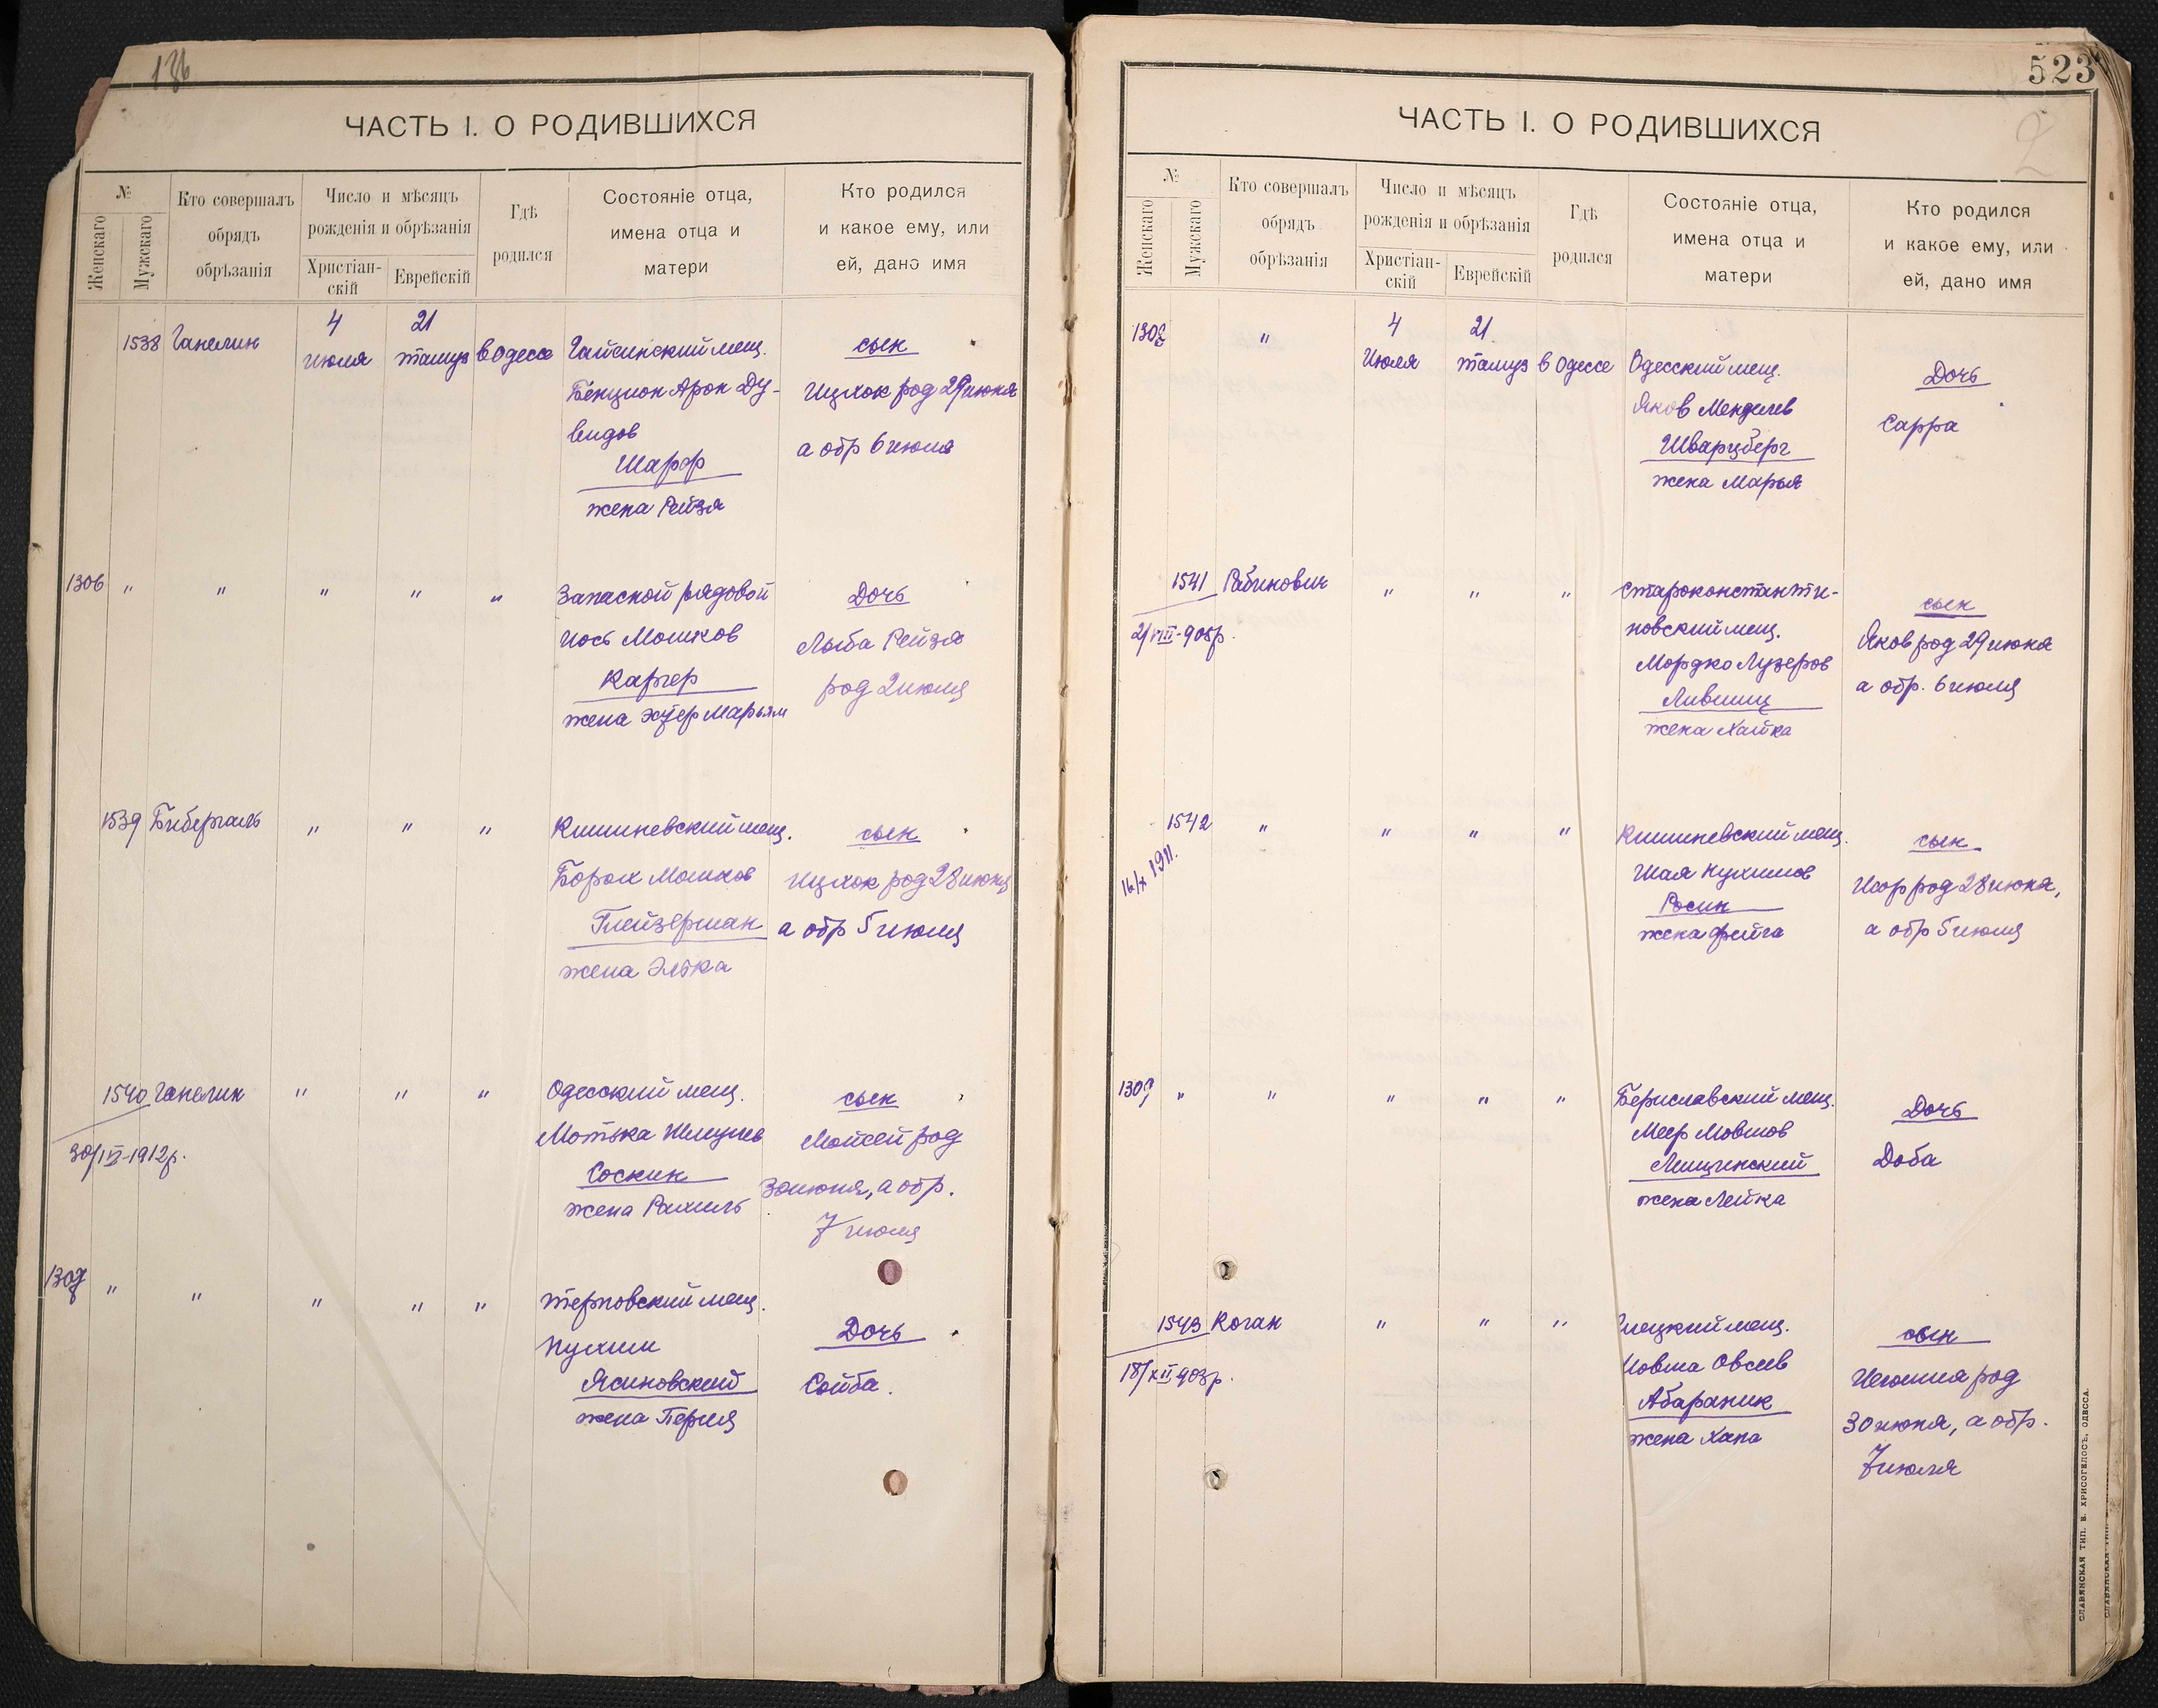 136
ЧАСТЬ I. О РОДИВШИХСЯ
№
Женскаго
Мужскаго
Кто совершалъ
обрядъ
обрѣзанія
Число и мѣсяцъ
рожденія и обрѣзанія
Христіан-
скій
Еврейскій
Гдѣ
родился
Состояніе отца,
имена отца и
матери
Кто родился
и какое ему, или
ей, дано имя
1538 Ганелин 4 июля 21 тамуз в Одессе Гайсинский мещ. сын
Бенцион Арон Ду-
видов
Ицхок род 29 июня
Шарф
а обр 6 июля
жена Рейзя
1306 " " " " " Запасной рядовой Дочь
Иось Мошков
Каргер
Лыба Рейзя
род 2 июля
жена Эстер Марьям
1539 Бибергаль " " " Кишиневский мещ. сын
Борох Мошков
Ицхок род 28 июня
Глейзерман
а обр 5 июля
жена Элька
1540 Ганелин " " " Одесский мещ. сын
30/IV-1912 р.
Мотька Шмулев
Моисей род
Соскин
30 июня, а обр.
жена Рахиль
7 июля
1307 " " " " " мещ.
Нухим
Дочь
Ясиновский
Сойба.
жена Перля
523
2
ЧАСТЬ I. О РОДИВШИХСЯ
№
Женскаго
Мужскаго
Кто совершалъ
обрядъ
обрѣзанія
Число и мѣсяцъ
рожденія и обрѣзанія
Христіан-
скій
Еврейскій
Гдѣ
родился
Состояніе отца,
имена отца и
матери
Кто родился
и какое ему, или
ей, дано имя
1308 " 4 Июля 21 тамуз в Одессе Одесский мещ.
Дочь
Яков Менделев
Сарра
Шварцберг
жена Марья
1541 Рабинович " " " Староконстанти-
новский мещ.
сын
2/VIII-908 р.
Мордко Лузеров
Яков род 29 июня
Лившиц
а обр. 6 июля
жена Хайка
1542 " " " " Кишиневский мещ. сын
16/X 1911.
Шая Нухимов
род 28 июня,
Росин
а обр 5 июля
жена Фейга
1309 " " " " " Бериславский мещ.
Дочь
Меер Мовшов
Лищинский
Доба
жена Лейка
1543 Коган " " " мещ.
сын
18/XII 903 р.
Иовша Овсеев
род
Абараник
30 июня, а обр.
жена Хана
7 июля
СЛАВЯНСКАЯ ТИП. Н. ХРИСОГЕЛОСЪ, ОДЕССА.